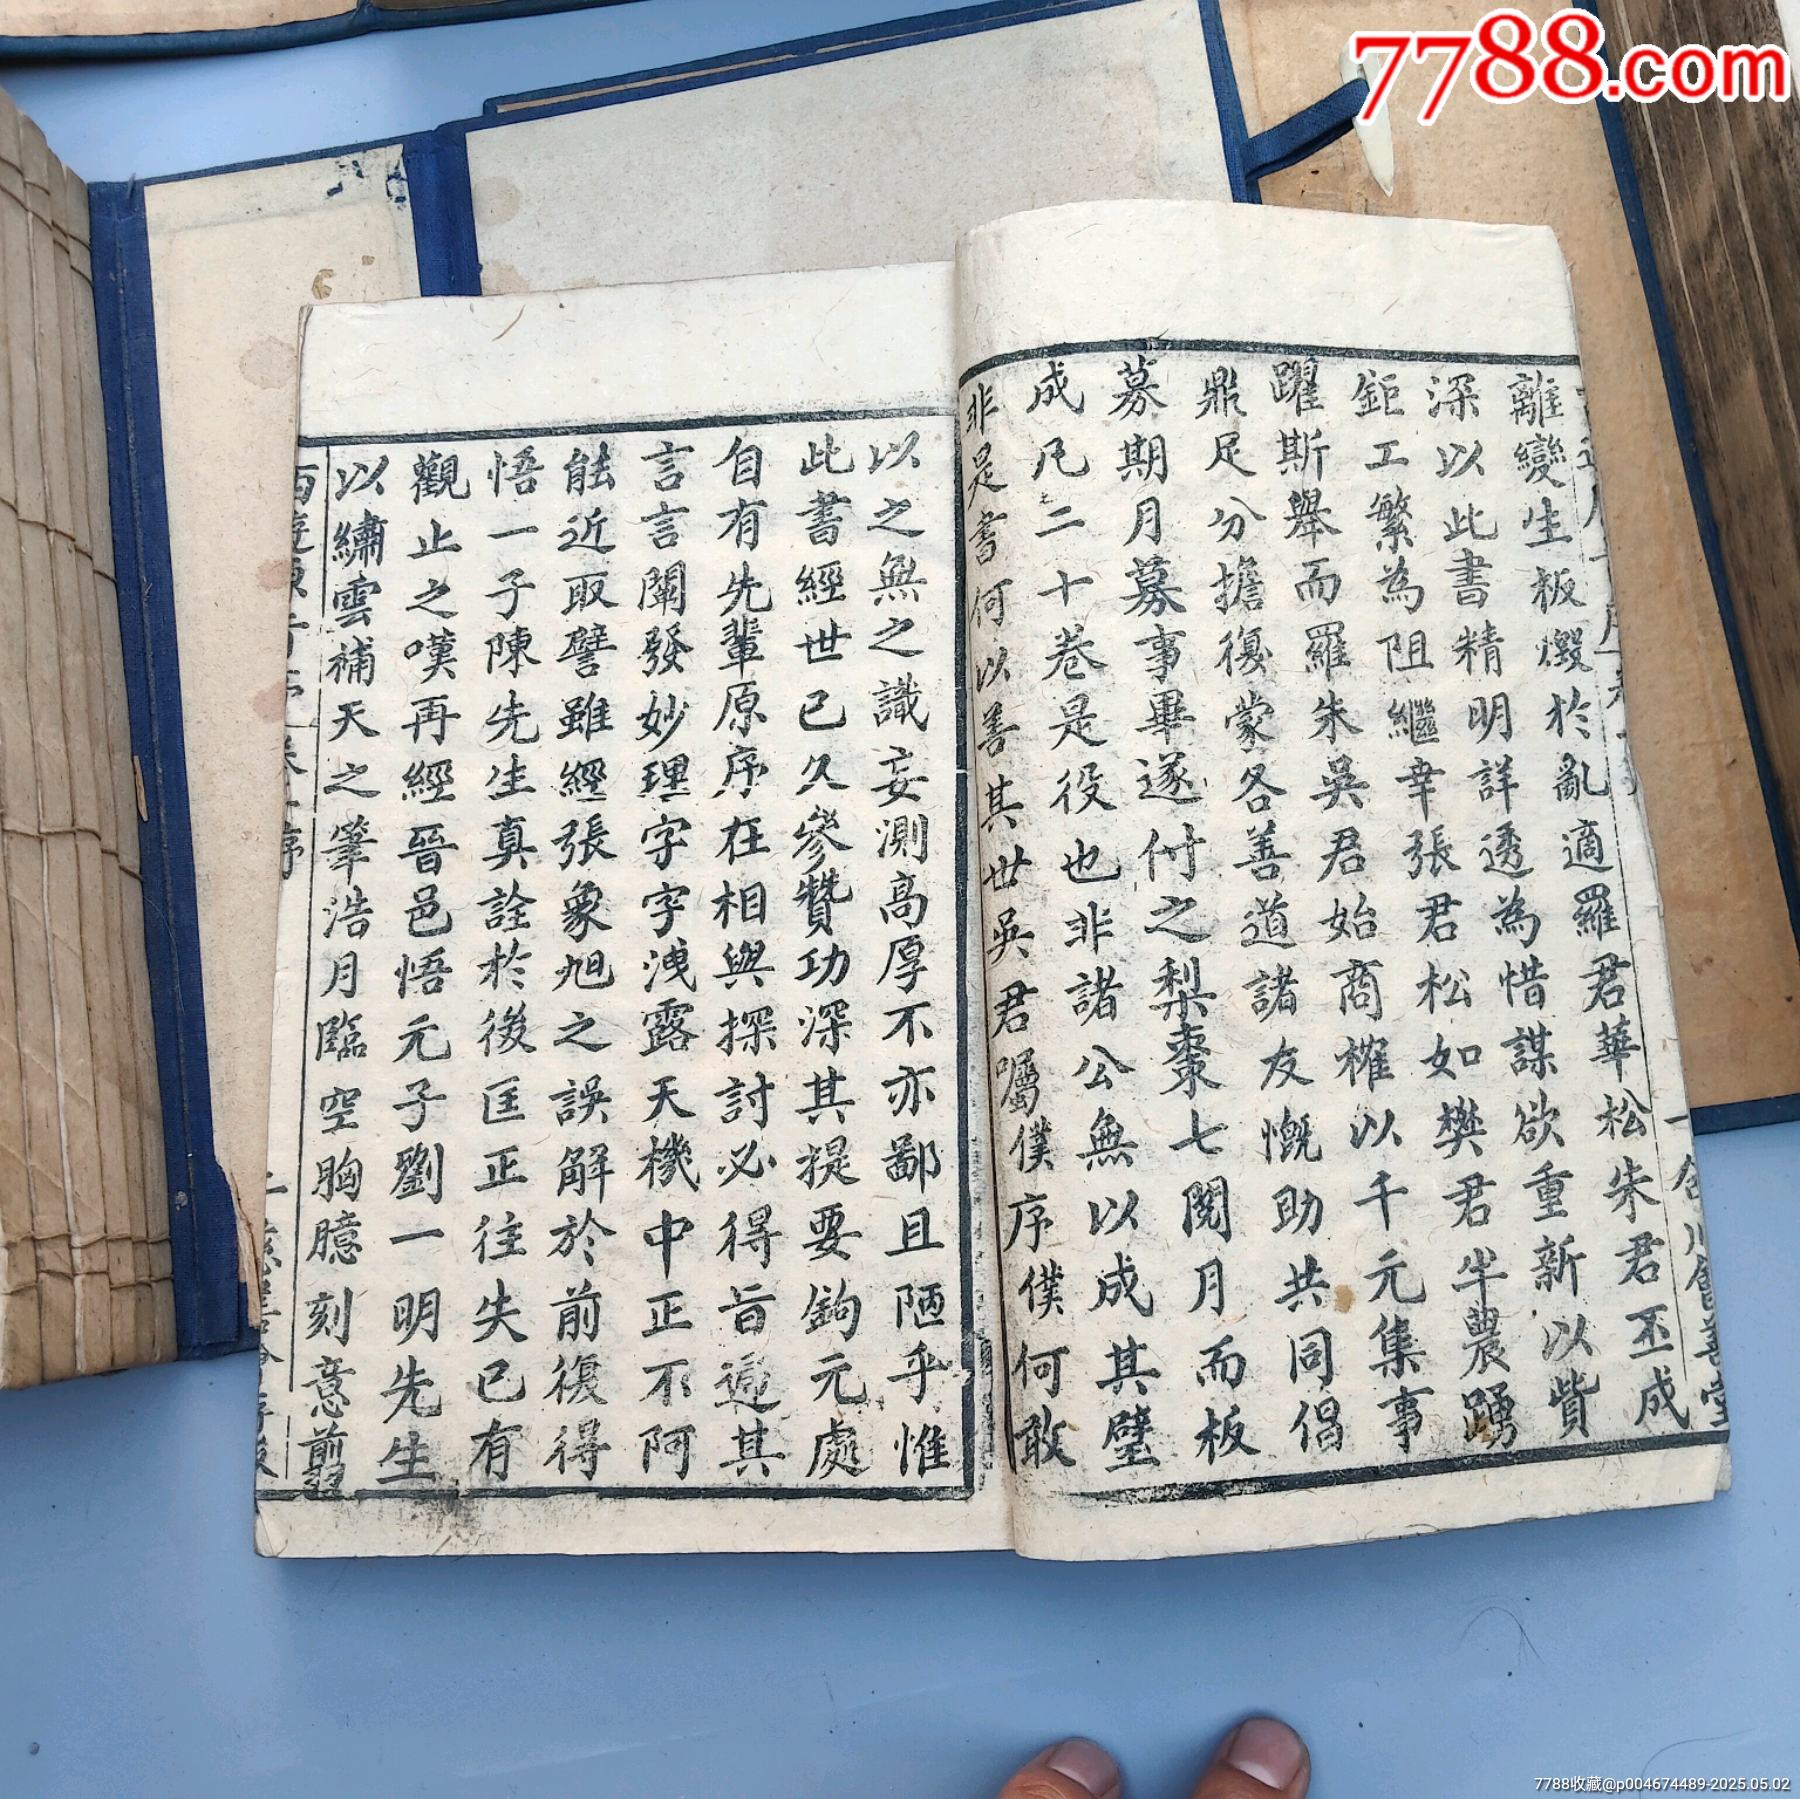 7788.com
離變生板燬於亂適羅君華松朱君丕成
深以此書精明詳透為惜謀欲重新以貲
鉅工繁為阻繼幸張君松如樊君半農踴
躍斯舉而羅朱吳君始商榷以千元集事
鼎足分擔復蒙各善道諸友慨助共同倡
募期月募事畢遂付之梨棗七閱月而板
成凡二十卷是役也非諸公無以成其璧
非是書何以善其世吳君囑僕序僕何敢
以之無之識妄測高厚不亦鄙且陋乎惟
此書經世已久參贊功深其提要鉤元處
自有先輩原序在相與探討必得旨迺其
言言闡發妙理字字洩露天機中正不阿
能近取譬雖經張象旭之誤解於前復得
悟一子陳先生真詮於後匡正往失已有
觀止之嘆再經晉邑悟元子劉一明先生
以繡雲補天之筆浩月臨空胸臆刻意翦
7788收藏@p004674489-2025.05.02